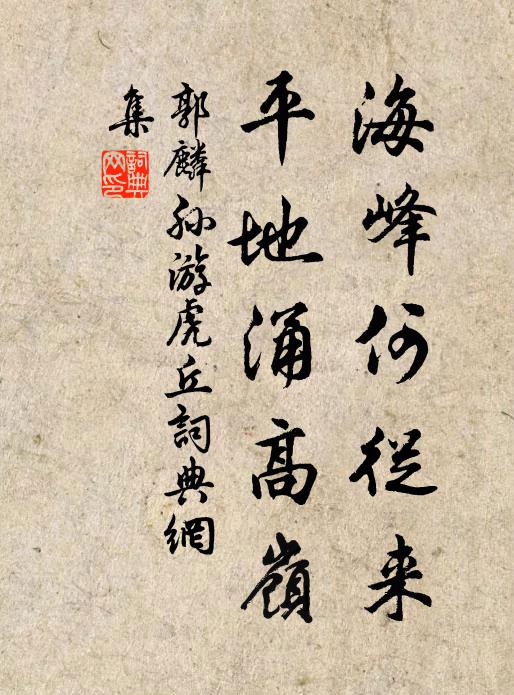 海峰何從来
平地涌高嶺
郭麟孙游虎丘詞典網
集
詞典网印